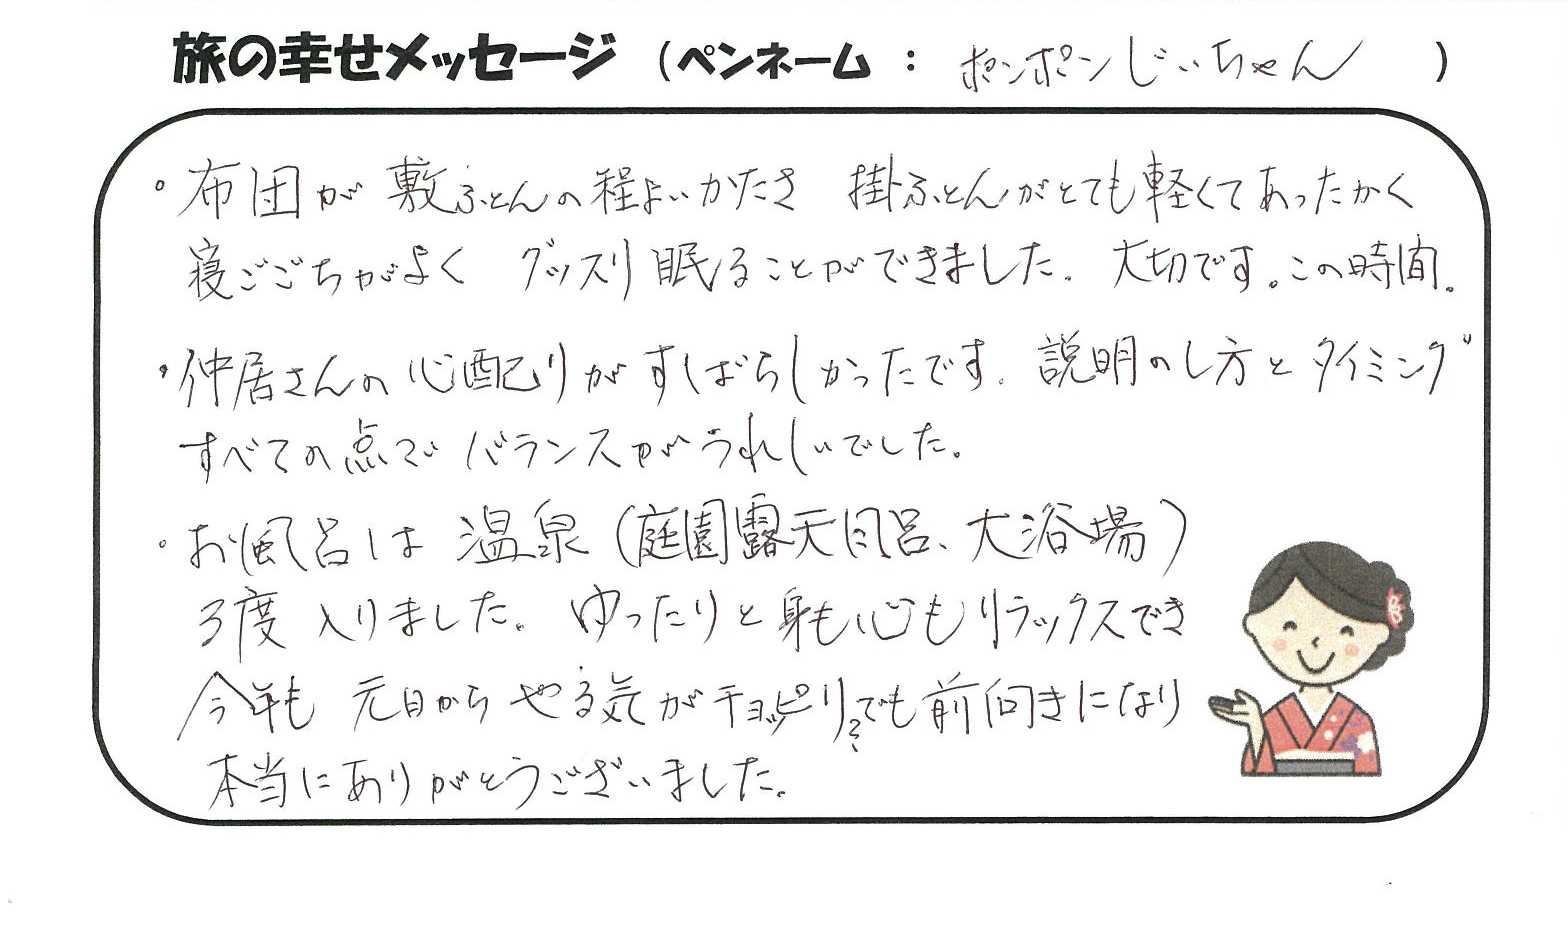 旅の幸せメッセージ (ペンネーム : ポンポンじいちゃん )
・布団が 敷ふとんの程よいかたさ 掛ふとんがとても軽くてあったかく
寝ごごちがよく グッスリ眠ることができました。大切です。この時間。
・仲居さんの心配りがすばらしかったです。説明のし方とタイミング
すべての点で バランスがうれしいでした。
・お風呂は 温泉(庭園露天風呂、大浴場)
3度入りました。ゆったりと身も心もリラックスでき
今年も 元日から やる気がチョッピリ?でも前向きになり
本当にありがとうございました。